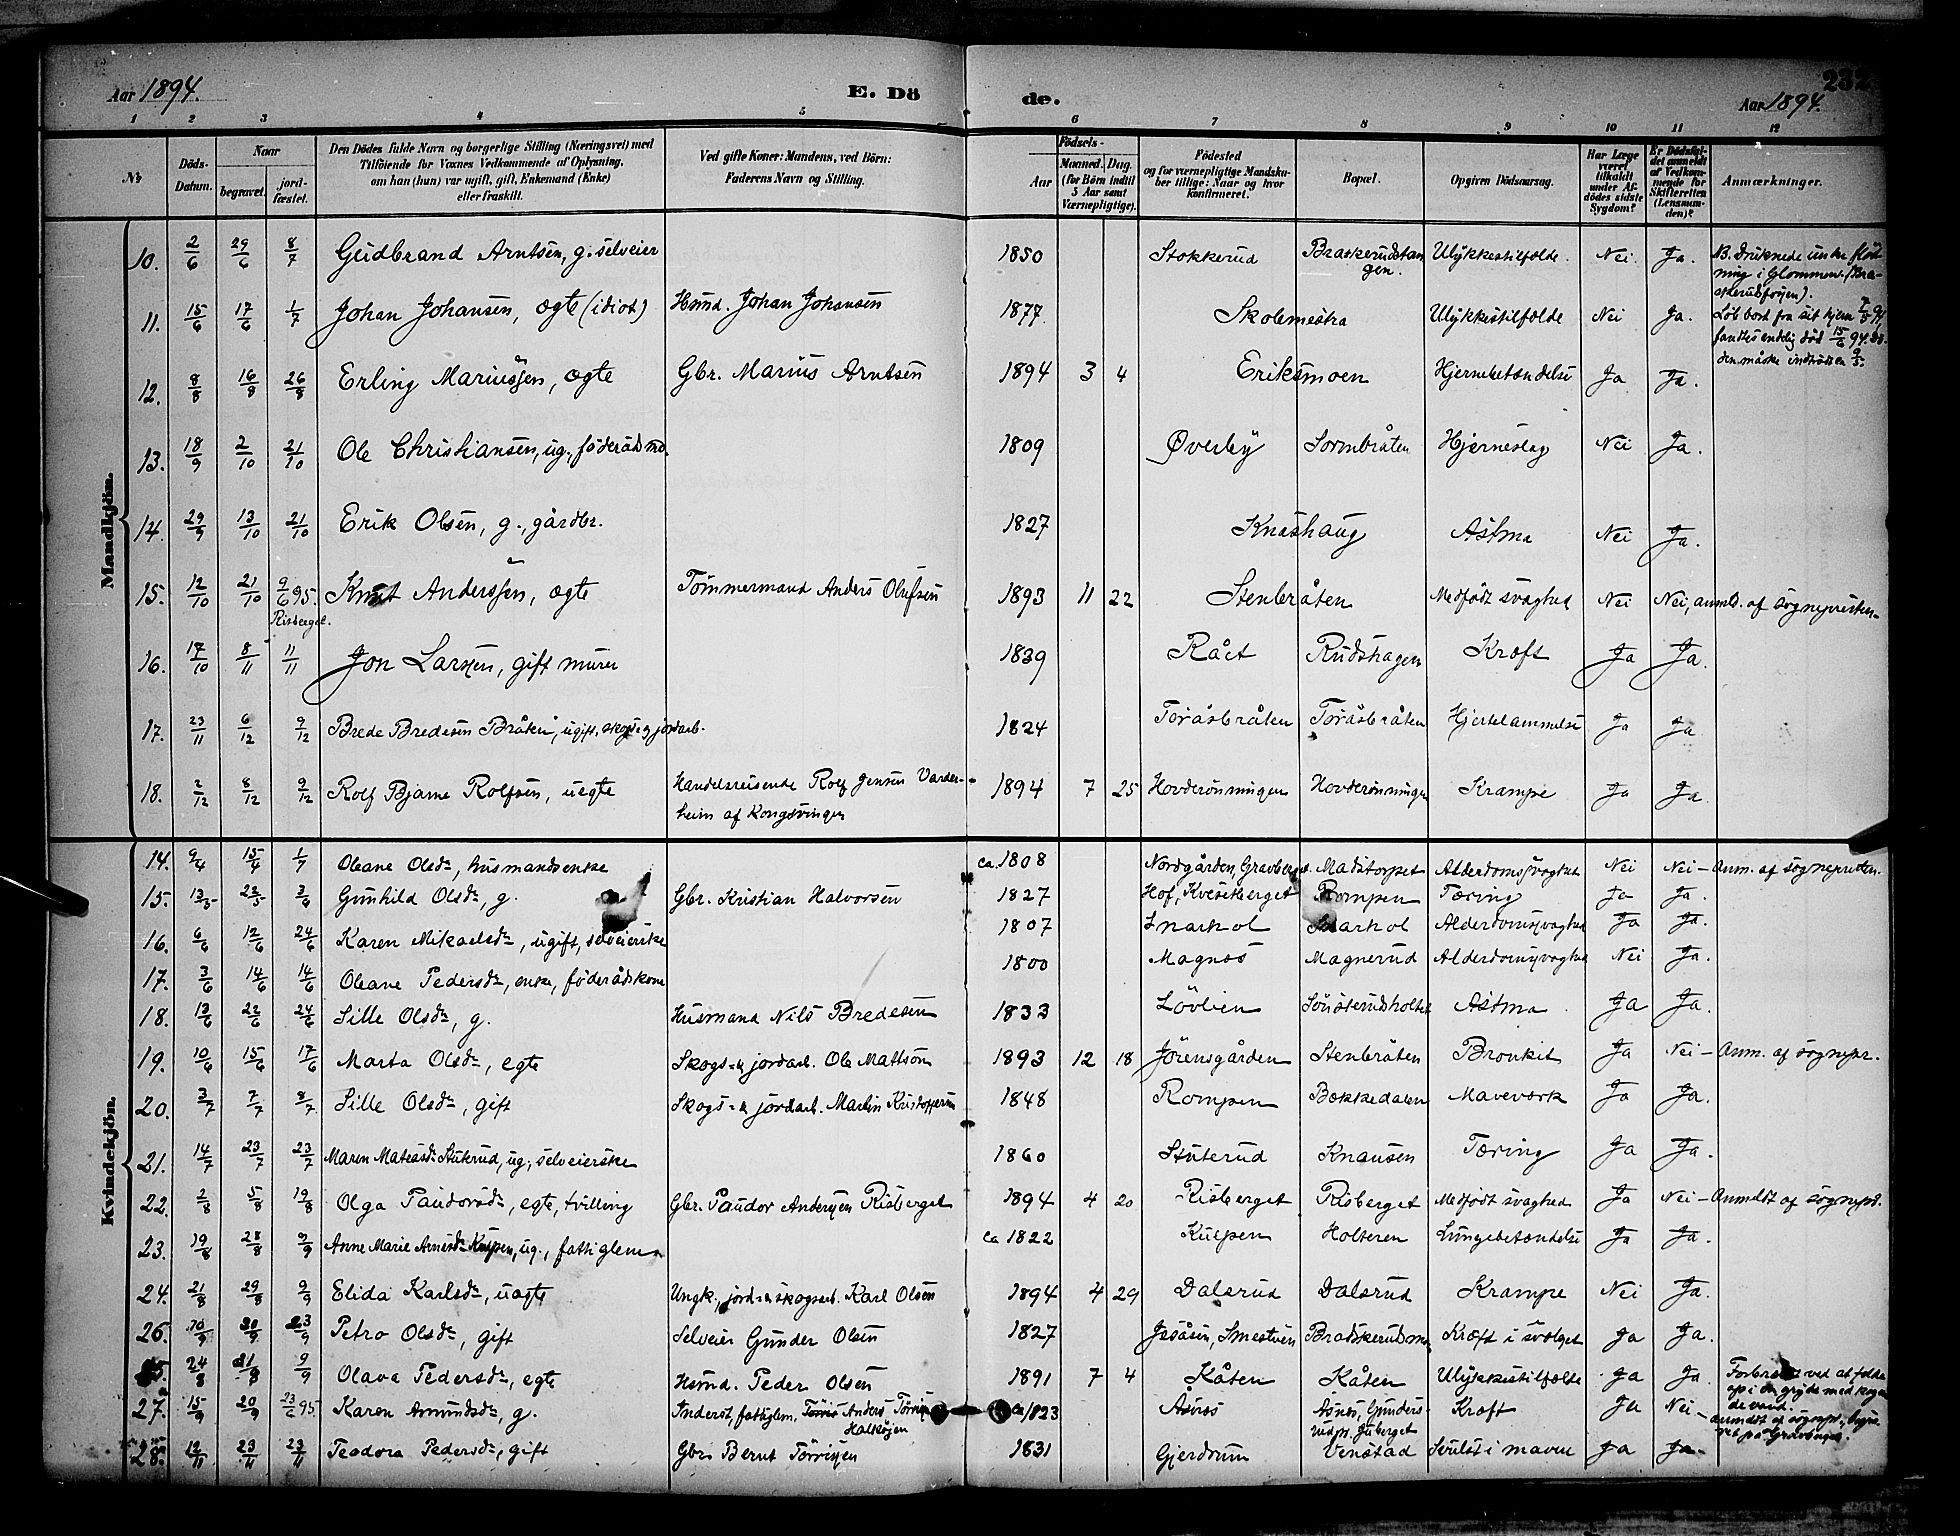 Aar 1894. E. Dö de. 232
Aar 1894.
1 2 3 4 5 6 7 8 9 10 11 12
№ Döds-Datum. Naar begravet. jord-fæstet. Den Dödes fulde Navn og borgerlige Stilling (Næringsvei) med Tilföiende for Voxnes Vedkommende af Oplysning, om han (hun) var ugift, gift, Enkemand (Enke) eller fraskilt. Ved gifte Koner: Mandens, ved Börn: Faderens Navn og Stilling. Födsels- Aar Maaned. Dag. (for Börn indtil 5 Aar samt Værnepligtige). Födested og for værnepligtige Mandsku-ber tillige: Naar og hvor konfirmeret. Bopæl. Opgiven Dödsaarsag. Har Læge været tilkaldt under Af-dödes sidste Sygdom? Er Dödsfal-det anmeldt af Vedkom-mende for Skifteretten (Lensman-den)? Anmærkninger.
Mandkjön.
10. 2/6 29/6 8/7 Gudbrand Arntsen, g. selveier 1850 Stokkerud Braskerudstangen. Ulykkestilfælde. Nei. Ja. NB. Druknede under flötning i Glommen (Braskerudfossen).
11. 15/6 17/6 1/7 Johan Johansen, ægte (idiot) Husmd. Johan Johansen 1877. Skolemestra Ulykkestilfælde Nei Ja. Löb bort fra sit hjem 7/5 94, fandtes endelig död 15/6 94. Döden måske indtråtten 9/5.
12. 8/8 16/8 26/8 Erling Mariussen, ægte Gbr. Marius Arntsen 1894 3 4 Eriksmoen Hjernebetændelse Ja Ja.
13. 18/9 2/10 21/10 Ole Christiansen, ug., föderådsmd. 1809 Øverby Sormbråten Hjerneslag Nei Ja.
14. 29/9 13/10 21/10 Erik Olsen, g., gårdbr. 1827 Knashaug Astma Nei Ja.
15. 12/10 21/10 9/6 95. Risberget. Knut Anderssen, ægte Tömmermand Anders Olufsen 1893 11 22 Stenbråten Medfödt svaghed Nei Nei, anmld. af sognepresten
16. 17/10 8/11 11/11 Jon Larssen, gift murer 1839 Rået Rudshagen Kræft Ja Ja.
17. 23/11 6/12 9/12 Brede Bredesen Bråten, ugift, skogs- og jordarb. 1824 Toråsbråten Toråsbråten Hjertelammelse Ja Ja
18. 2/12 8/12 9/12 Rolf Bjarne Rolfsen, uægte Handelsreisende Rolf Jensen Varderheim af Kongsvinger 1894 7 25 Hovderönningen Hovderönningen Krampe Ja Ja.
Kvindekjön.
14. 9/4 15/4 1/7 Oleane Olsdr, husmandsenke ca. 1808 Nordgården, Gravberget Madstorpet Alderdomssvaghed Nei Nei – Anm. af sognepresten.
15. 13/5 22/5 3/6 Gunhild Olsdr, g. Gbr. Kristian Halvorsen 1827 Hof, Kveseteberget Rompen Tæring Ja Ja.
16. 6/6 12/6 24/6 Karen Mikaelsdr, ugift, selveierske 1807 Snarkol Snarkol Alderdomssvaghed Ja Ja.
17. 3/6 14/6 14/6 Oleane Pedersdr, enke, föderådskone 1800 Magnås Magnerud Alderdomssvaghed Nei Ja.
18. 13/6 22/6 24/6 Sille Olsdr, g. Husmand Nils Bredesen 1833 Lövlien Sönsterudholtet Astma Ja Ja.
19. 10/6 15/6 17/6 Marta Olsdr, egte Skogs- & jordarb. Ole Mattson 1893 12 18 Jörensgården Stenbråten Bronkit Ja Nei – Anm. af sognepr.
20. 3/7 7/7 8/7 Sille Olsdr, gift Skogs- & jordarb. Martin Kristoffersen 1848 Rompen Bækkedalen Maveværk Ja Ja.
21. 14/7 23/7 23/7 Maren Mateasdr Stuterud, ug., selveierske 1860 Stuterud Knausen Tæring Ja Ja.
22. 2/8 5/8 19/8 Olga Paudorsdr, egte, tvilling Gbr. Paudor Anderssen Risberget 1894 4 20 Risberget Risberget Medfödt svaghed Ja Nei – Anmeldt af sognepr.
23. 19/8 28/8 9/9 Anne Marie Arnesdr Kulpen, ug., fattiglem ca 1822 Kulpen Holteren Lungebetændelse Ja Ja.
24. 21/8 29/8 9/9 Elida Karlsdr, uægte Ungk., jord- & skogsarb. Karl Olsen 1894 4 29 Dalsrud Dalsrud Krampe Nei Ja.
26. 10/9 20/9 23/9 Petro Olsdr, gift Selveier Gunder Olsen 1827 Jssåsen, Smestuen Braskerudmo. Kræft i svælget Ja Ja.
25. 24/8 31/8 9/9 Olava Pedersdr, egte Husmd. Peder Olsen 1891 7 4 Kåten Kåten Ulykkestilfælde Ja Ja. Forbrændt ved at falde op i en gryde med kogende vand.
27. 15/9 20/9 23/6 95. Karen Amundsdr, g. Inderst, fattiglem, Anders Halksjøen ca 1823 Åsnes Åsnes, Gunders- Kræft Ja Nei – anmeldt af sognepr., på Gravberget.
28. 12/11 23/11 23/11 Teodora Pedersdr, gift Gbr. Bernt Törrissen 1831 Gjerdrum Venstad Svulst i maven Ja Ja.